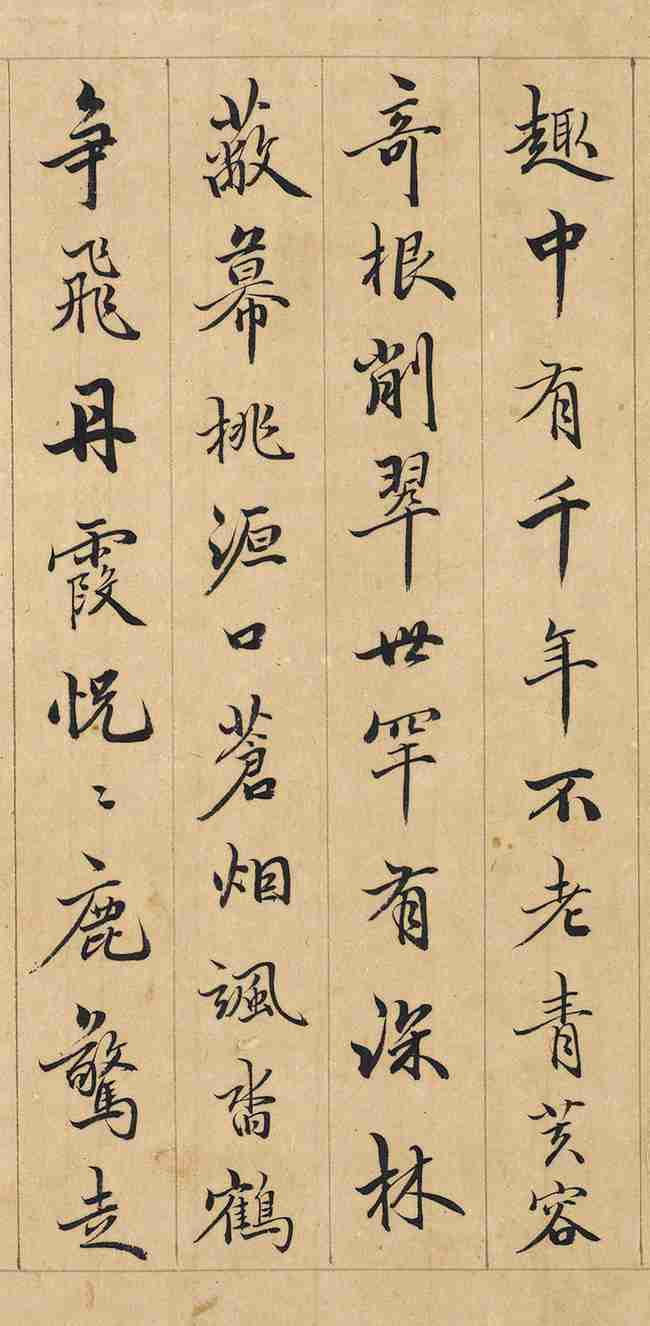 趣中有千年不老青芙容
奇根削翠世罕有深林
蔽幕桃源口蒼烟颯沓鶴
争飛丹霞怳〻鹿驚走